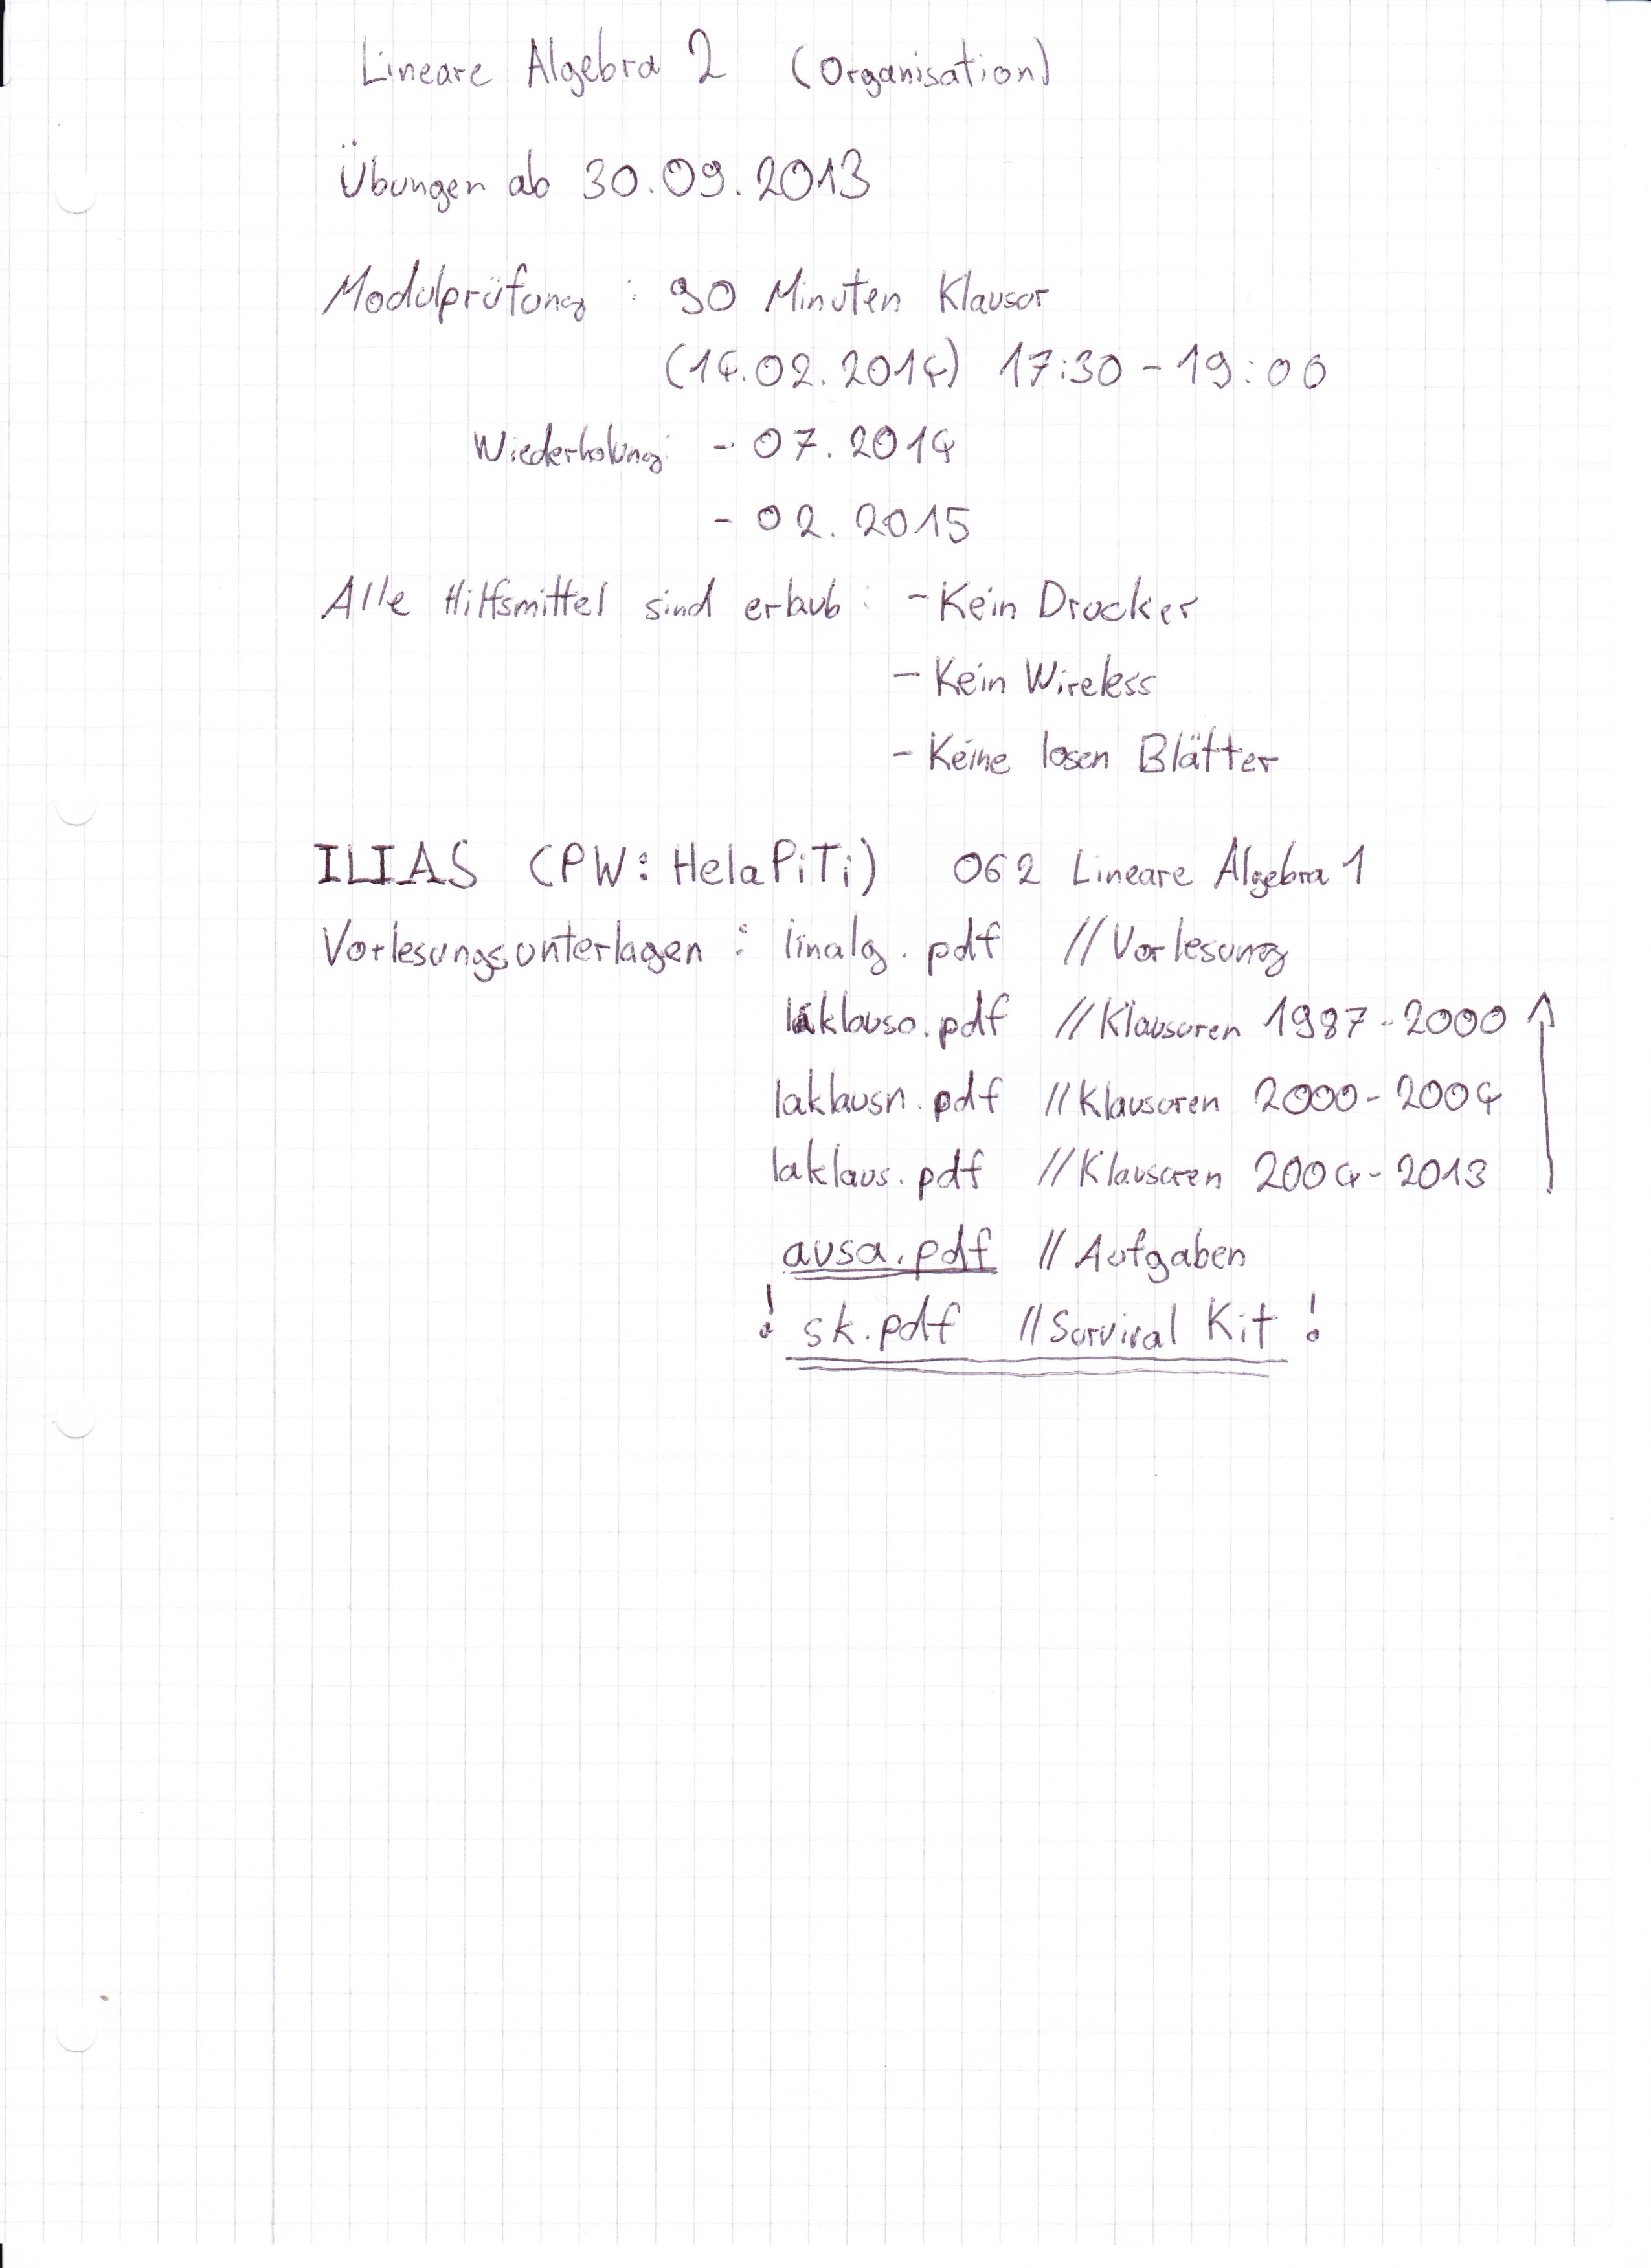 Lineare Algebra 2 (Organisation)
Übungen ab 30.09.2013
Modulprüfung : 90 Minuten Klausur
(14.02.2014) 17:30 - 19:00
Wiederholung: - 07.2014
- 02.2015
Alle Hilfsmittel sind erlaub : - Kein Drucker
- Kein Wireless
- Keine losen Blätter
ILIAS (PW: HelaPiTi) 062 Lineare Algebra 1
Vorlesungsunterlagen : linalg.pdf // Vorlesung
laklauso.pdf // Klausuren 1987-2000
laklausn.pdf // Klausuren 2000-2004
laklaus.pdf // Klausuren 2004-2013
ausa.pdf // Aufgaben
! sk.pdf // Survival Kit !